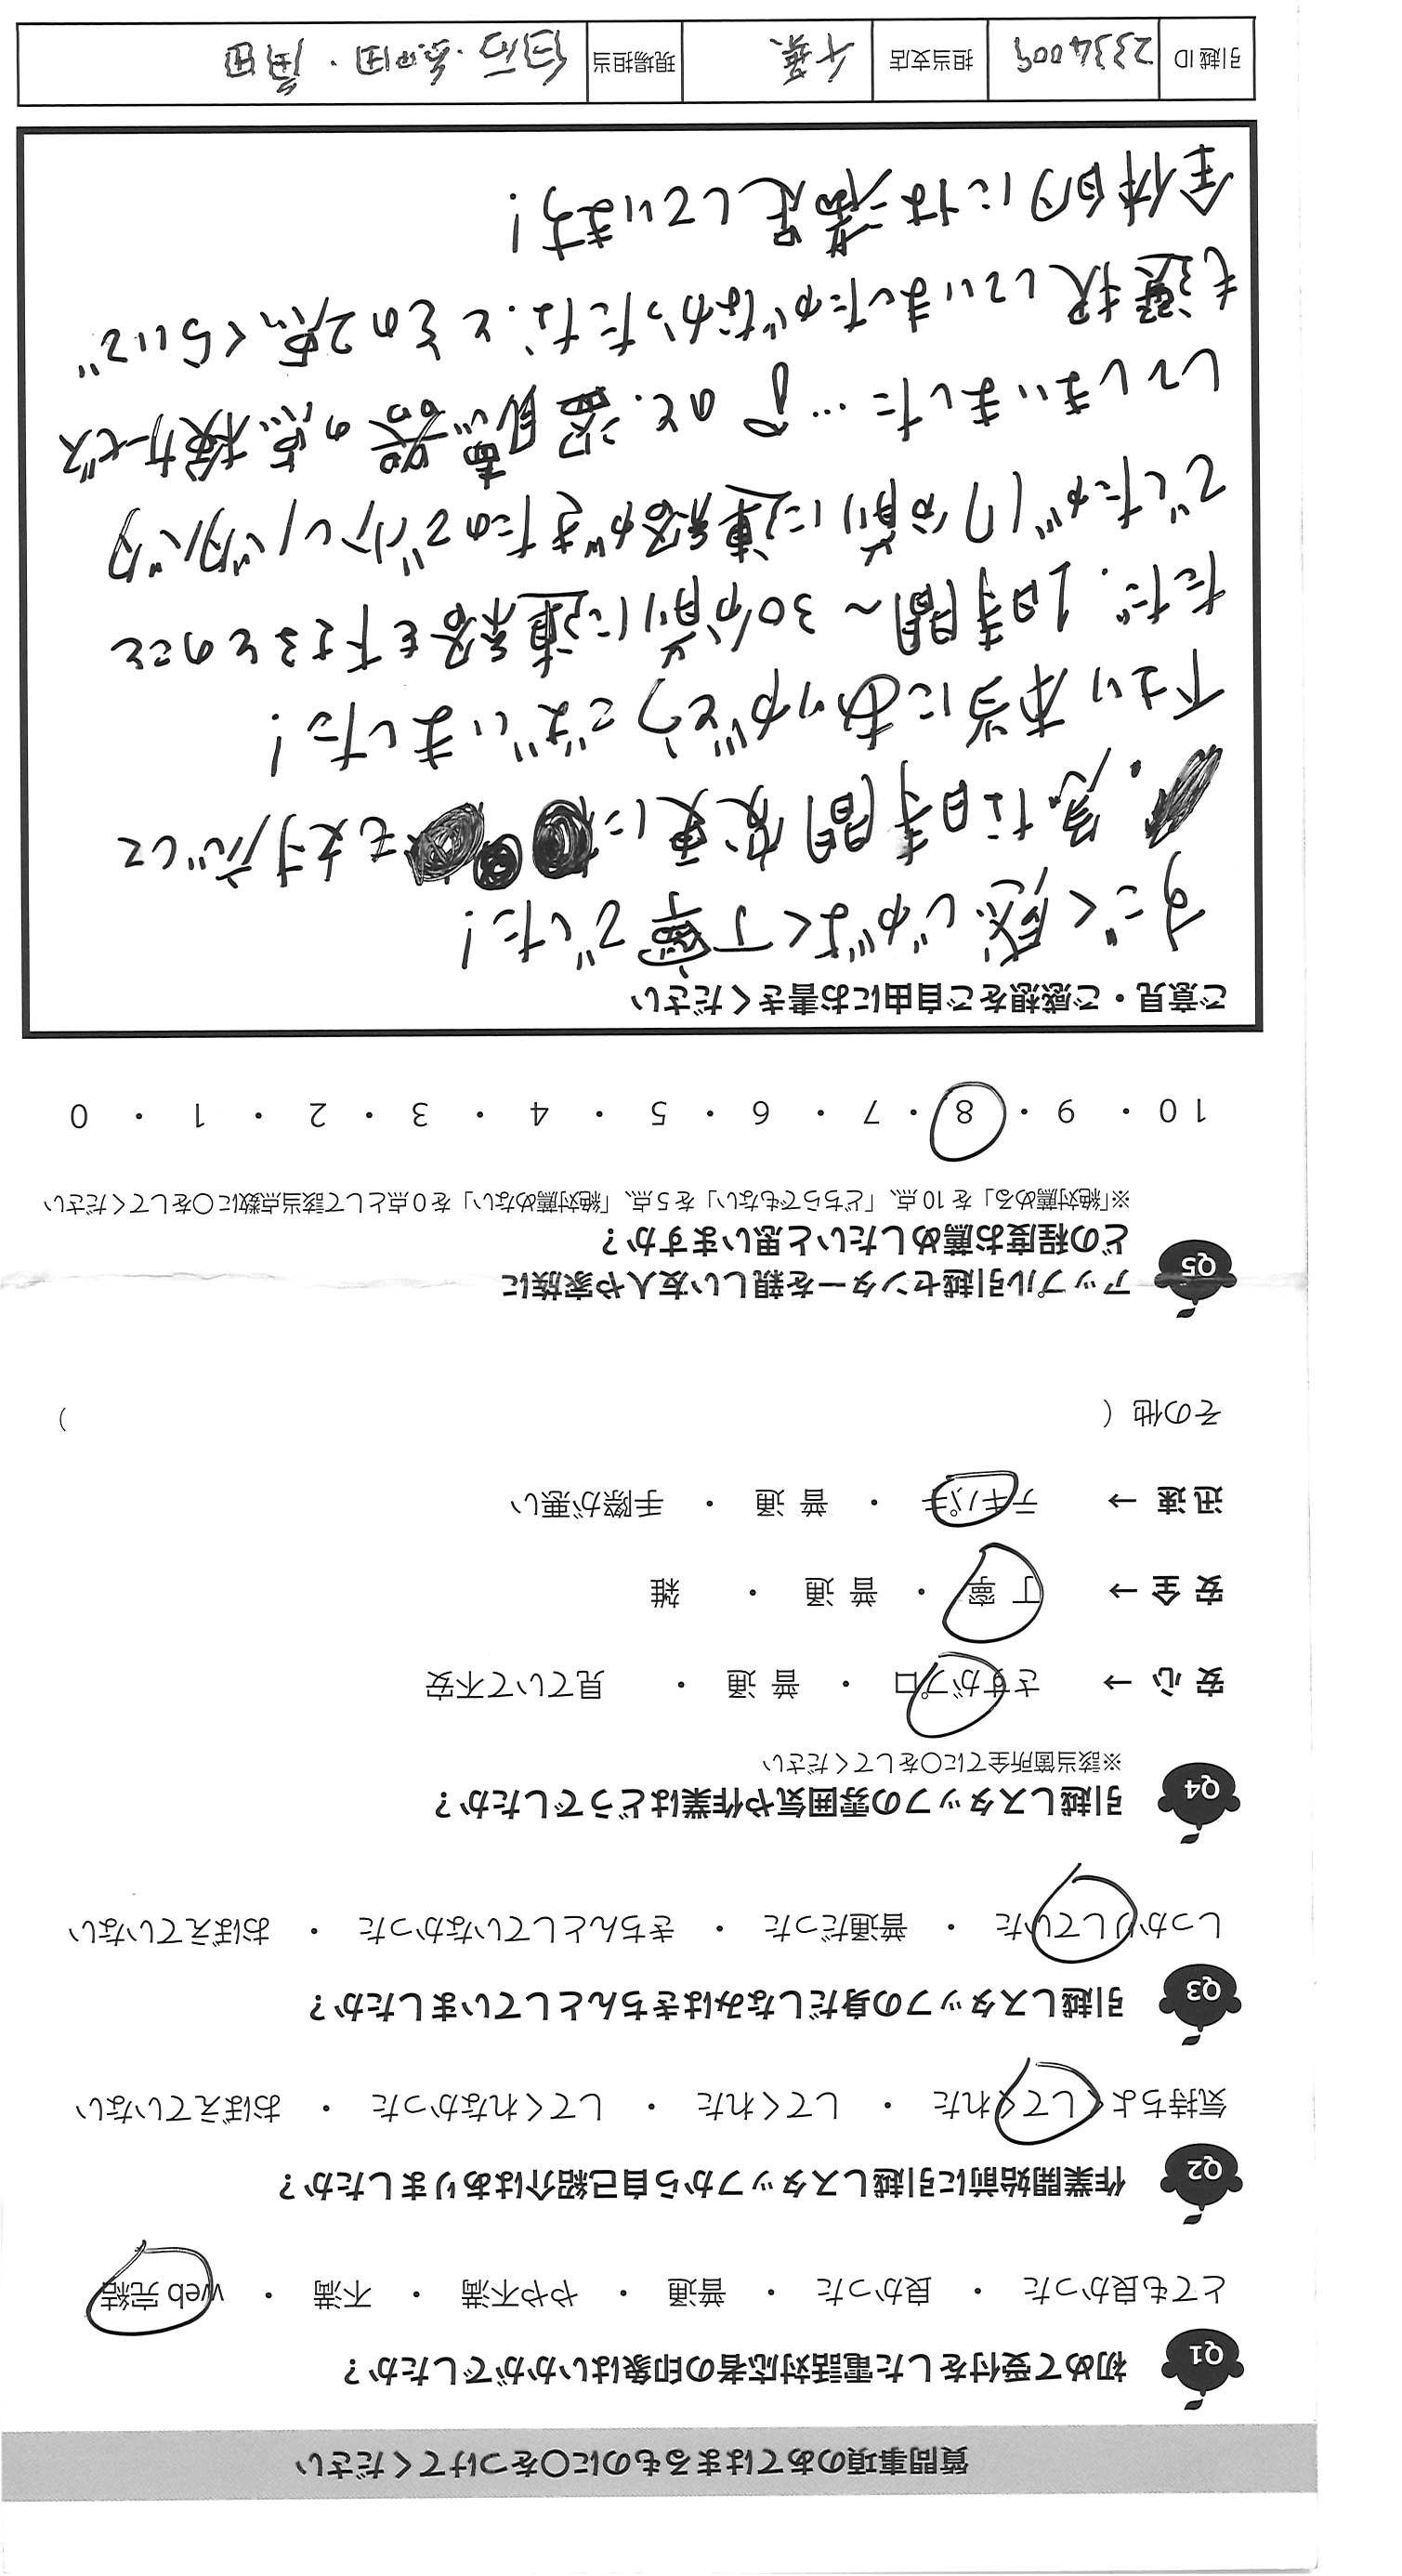 質問事項のあてはまるものに〇をつけてください
Q1 初めて受付をした電話対応者の印象はいかがでしたか？
とても良かった ・ 良かった ・ 普通 ・ やや不満 ・ 不満 ・ web 完結
Q2 作業開始前に引越しスタッフから自己紹介はありましたか？
気持ちよくしてくれた ・ してくれた ・ してくれなかった ・ おぼえていない
Q3 引越しスタッフの身だしなみはきちんとしていましたか？
しっかりしていた ・ 普通だった ・ きちんとしていなかった ・ おぼえていない
Q4 引越しスタッフの雰囲気や作業はどうでしたか？
※該当箇所全てに〇をしてください
安 心 → さすがプロ ・ 普 通 ・ 見ていて不安
安 全 → 丁 寧 ・ 普 通 ・ 雑
迅 速 → テキパキ ・ 普 通 ・ 手際が悪い
その他（ ）
Q5 アップル引越センターを親しい友人や家族に
どの程度お薦めしたいと思いますか？
※「絶対薦める」を 10 点、「どちらでもない」を 5 点、「絶対薦めない」を 0 点として該当点数に〇をしてください
10 ・ 9 ・ 8 ・ 7 ・ 6 ・ 5 ・ 4 ・ 3 ・ 2 ・ 1 ・ 0
ご意見・ご感想をご自由にお書きください
すごく感じがよく丁寧でした！
急な日時間変更にも対応して
下さり本当にありがとうございました！
ただ、1時間〜30分前に連絡を下さるとのこと
でしたが17分前に連絡がきたので少しバタバタ
してしまいました…。あと、盗聴器の点検サービス
も選択していましたがなかったな、とその2点くらいで
全体的には満足しています！
引越 ID 2334009 担当支店 千葉 現場担当